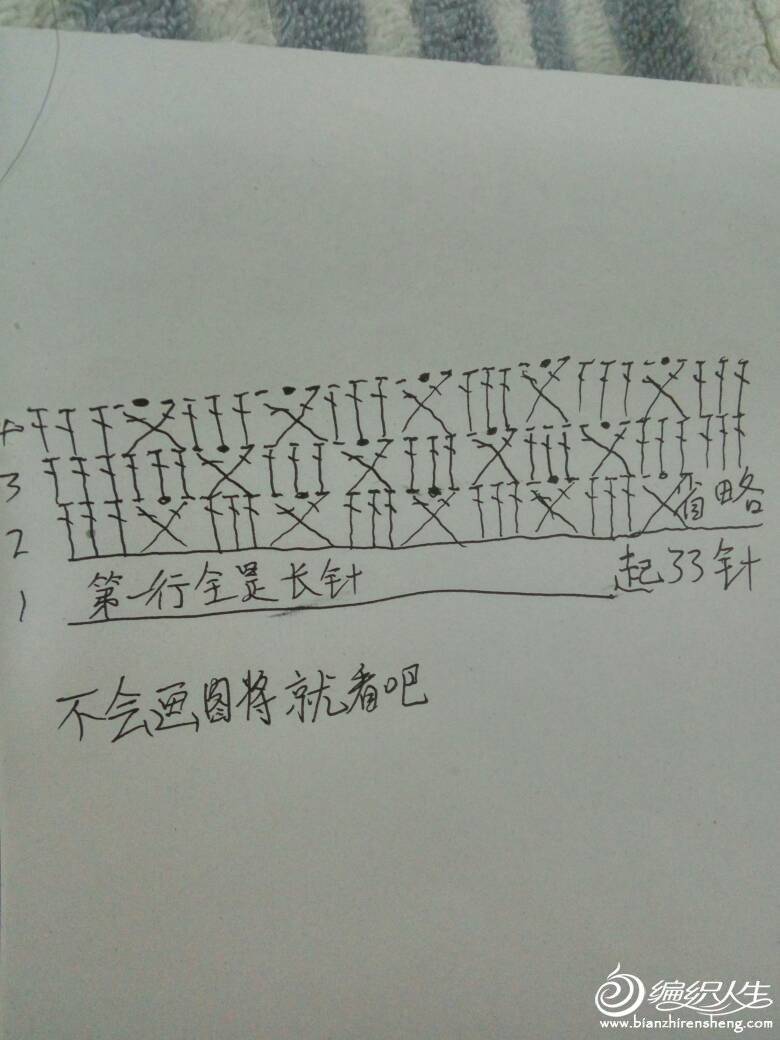 4
3
2
省略
1
第一行全是长针
起33针
不会画图将就看吧
编织人生
www.bianzhirensheng.com